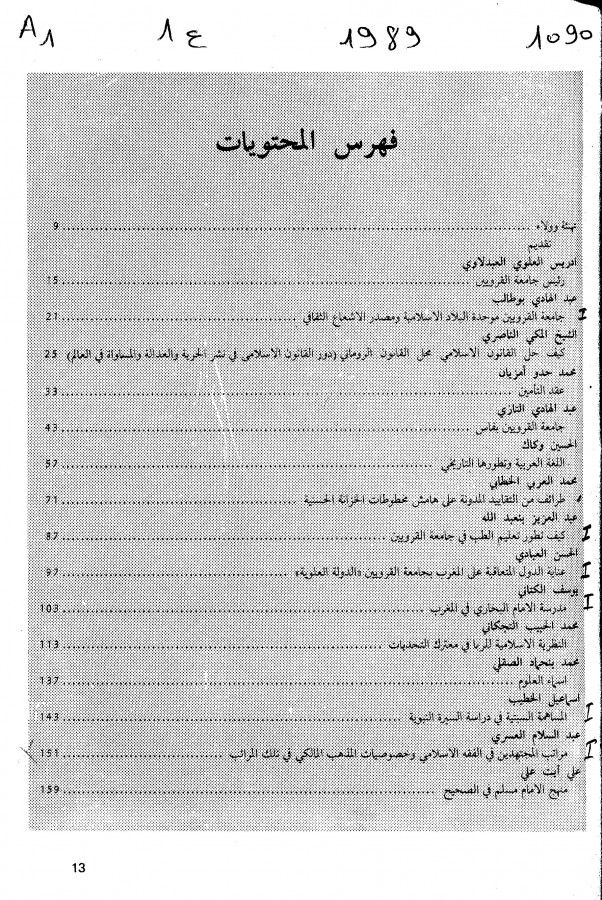 A1 1ع 1989 1090
فهرس المحتويات
تهنئة وولاء 9
تقديم
ادريس العلوي العبدلاوي
رئيس جامعة القرويين 15
عبد الهادي بوطالب
جامعة القرويين موحدة البلاد الاسلامية ومصدر الاشعاع الثقافي 21 I
الشيخ المكي الناصري
كيف حل القانون الاسلامي محل القانون الروماني (دور القانون الاسلامي في نشر الحرية والعدالة والمساواة في العالم) 25
محمد حدو أمزيان
عقد التأمين 33
عبد الهادي التازي
جامعة القرويين بفاس 43
الحسين وكاك
اللغة العربية وتطورها التاريخي 57
محمد العربي الخطابي
طرائف من التقاييد المدونة على هامش مخطوطات الخزانة الحسنية 71
عبد العزيز بنعبد الله
كيف تطور تعليم الطب في جامعة القرويين 87 I
الحسن العبادي
عناية الدول المتعاقبة على المغرب بجامعة القرويين «الدولة العلوية» 97 I
يوسف الكتاني
مدرسة الامام البخاري في المغرب 103 I
محمد الحبيب التجكاني
النظرية الاسلامية للربا في معترك التحديات 113
محمد بنحماد الصقلي
اسماء العلوم 137
اسماعيل الخطيب
المساهمة السبتية في دراسة السيرة النبوية 143 I
عبد السلام العسري
مراتب المجتهدين في الفقه الاسلامي وخصوصيات المذهب المالكي في تلك المراتب 151 I
علي أيت علي
منهج الامام مسلم في الصحيح 159
13